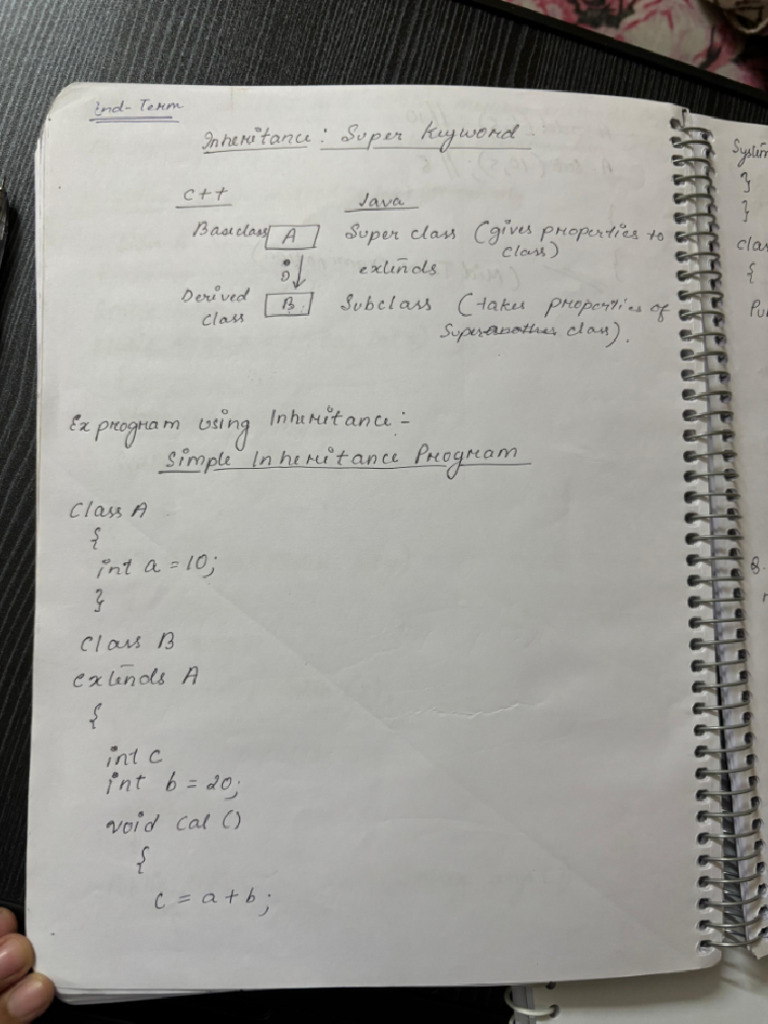 End-Term
Inheritance: Super Keyword
C++ Java
Baseclass A Super class (gives properties to
class)
extends
Derived B Subclass (takes properties of
class Super class).
Ex program using Inheritance:-
Simple Inheritance Program
Class A
{
int a = 10;
}
Class B
extends A
{
int c
int b = 20;
void Cal ()
{
c = a + b;
System
}
}
clas
{
Pu